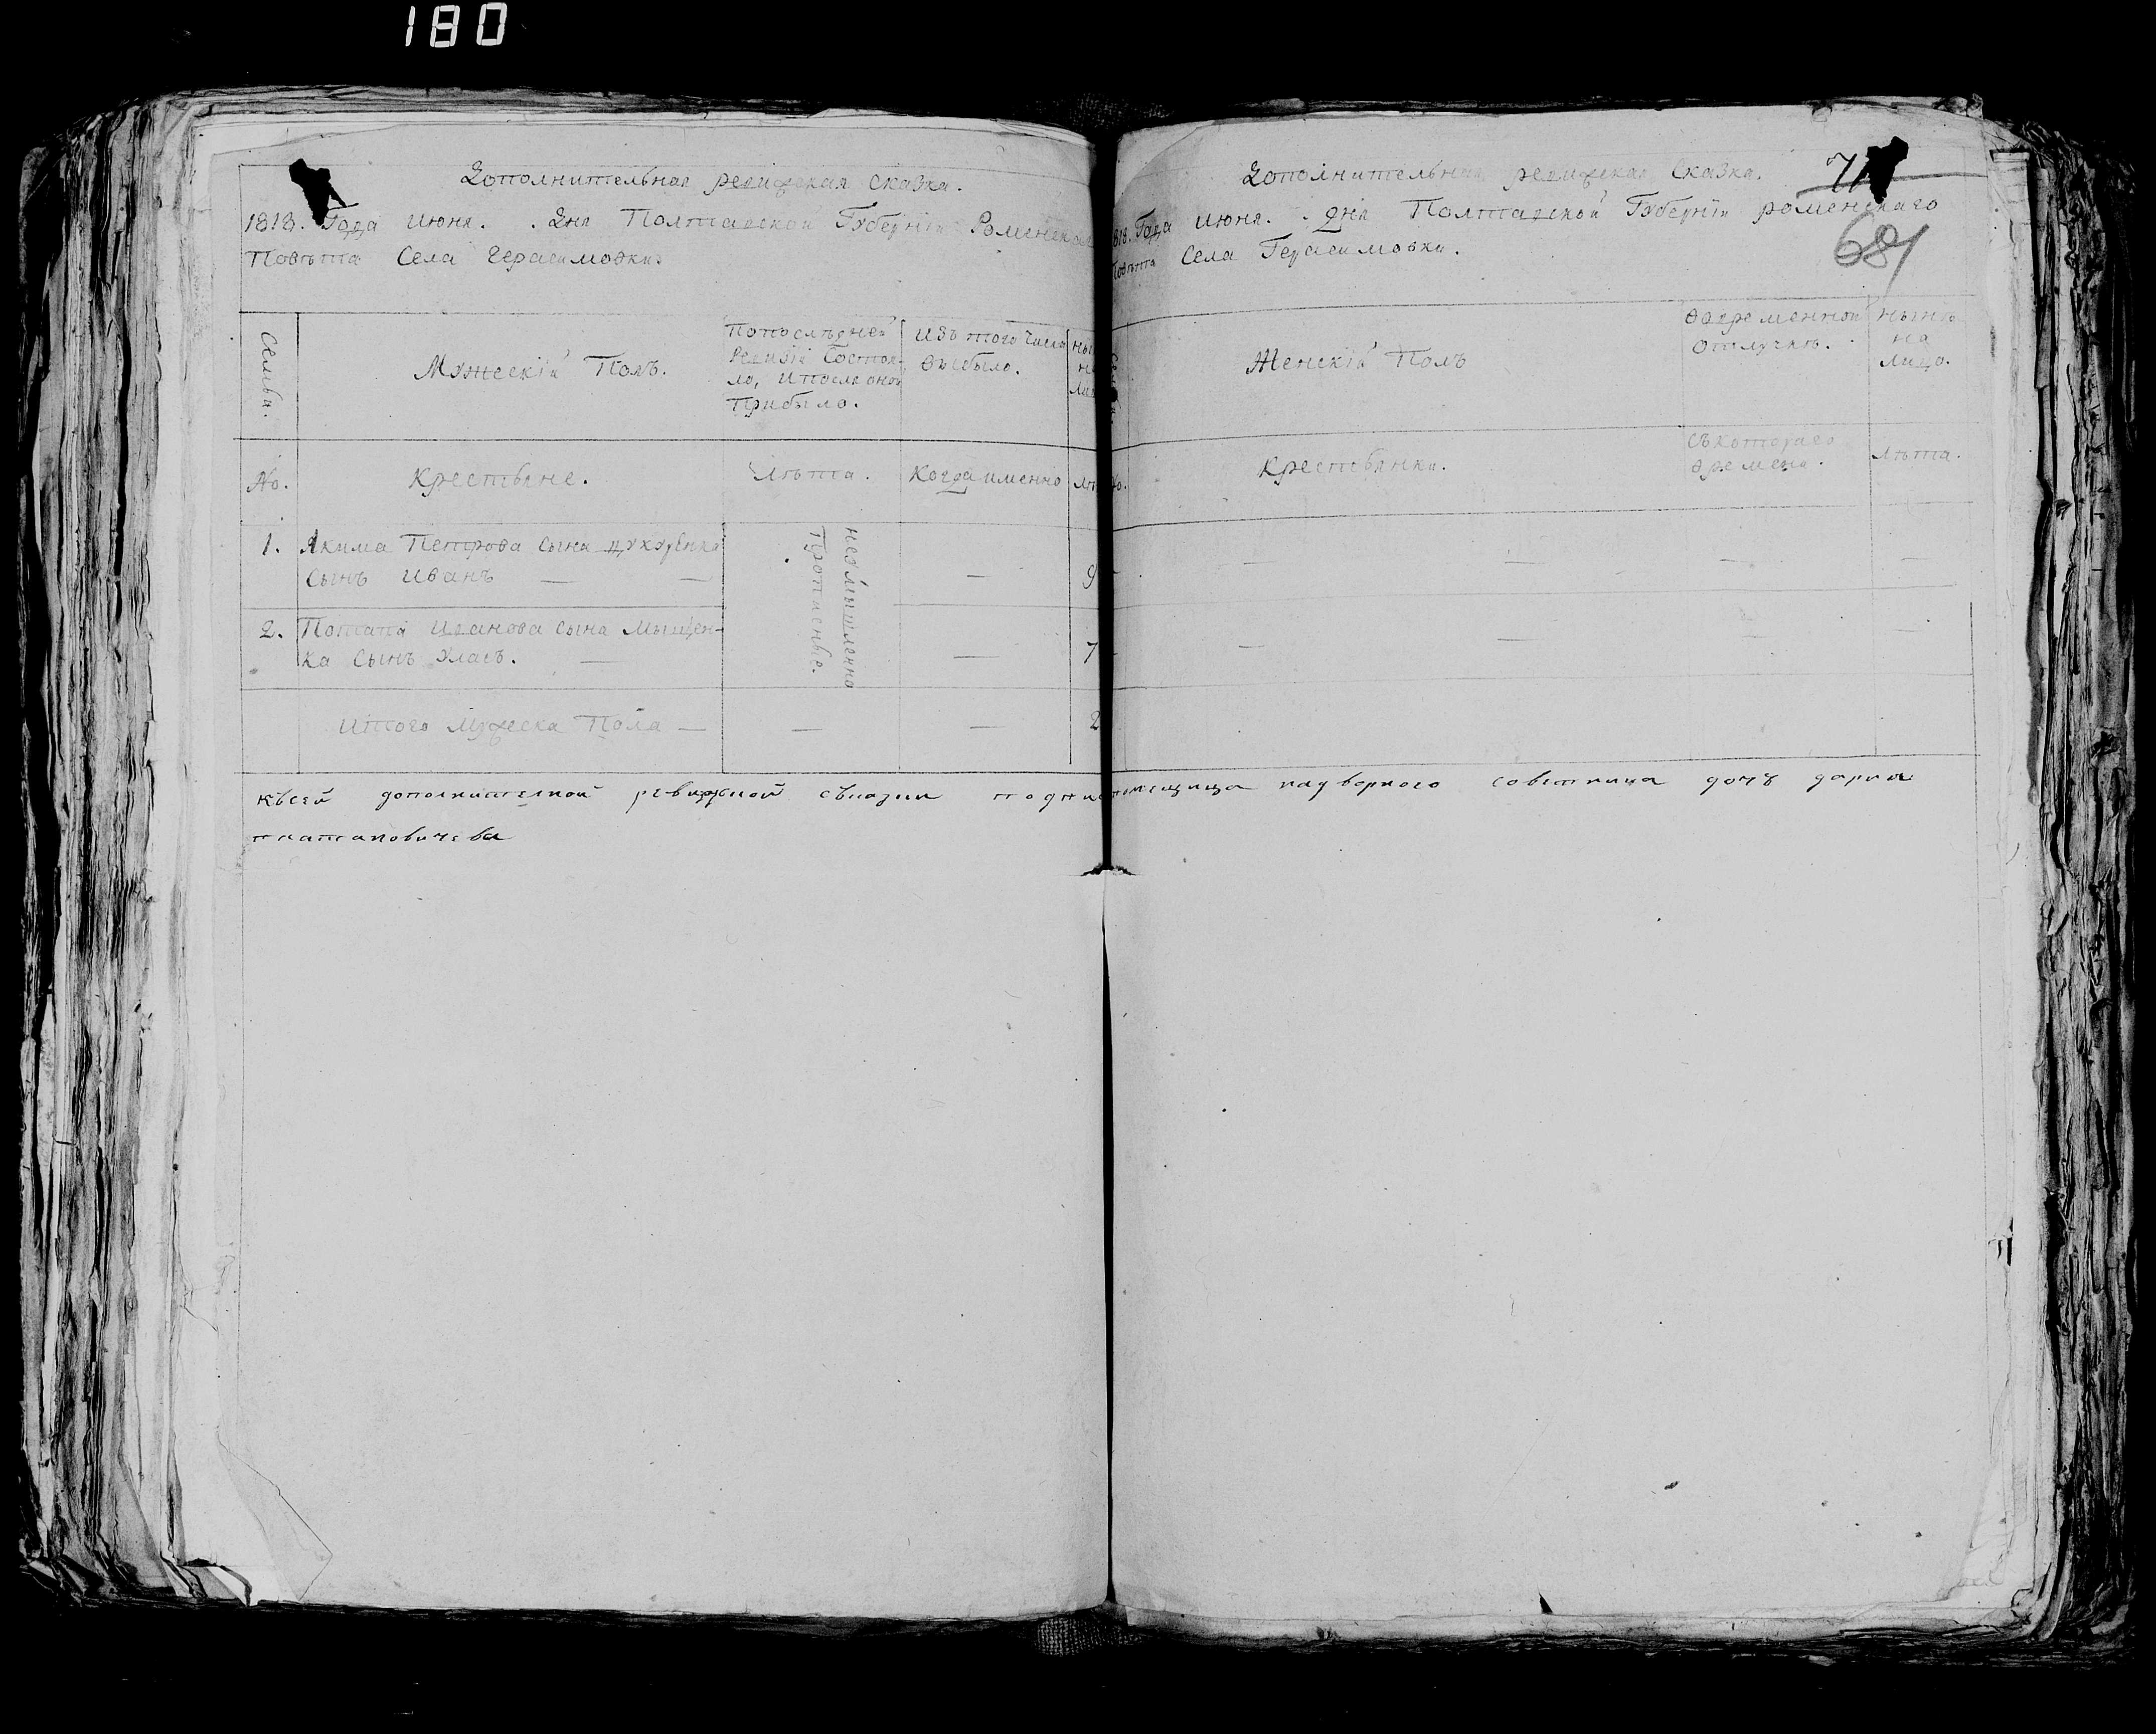 180
Дополнительная ревижская сказка.
1818. Года июня. . дня Полтавской Губернїи Роменскаго
Повѣта Села Герасимовки
Семьи.
Мужескїй Полъ.
По последней
Ревизїи Состоя-
ло, и после оной
Прибыло.
Изъ того числа
Выбыло.
№.
Крестьяне.
Лѣта.
Когда именно
1. Якима Петрова сына
сынъ Иванъ — —
— 9
неумышленно
Прописные.
2. Потапа Иванова сына Мищен-
ка сынъ Уласъ. —
— 7
Итого Мужеска Пола — — — 2
Дополнительная ревижская Сказка.
71
1818. Года июня. . дня Полтавской Губернїи роменскаго
Повѣта Села Герасимовки.
681
Женскїй Полъ
Во временной
отлучке.
Ныне
на
лицо.
№.
Крестьянки.
Съ котораго
времени.
Лѣта.
— — — —
— — — —
къ сей дополнителной ревизкой сказки помещица надворного советника дочъ дария